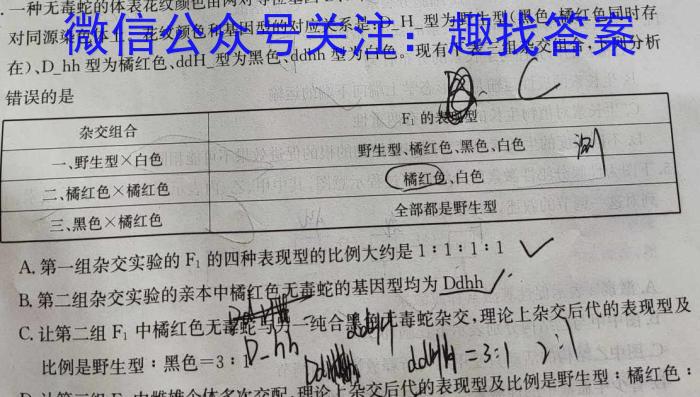 一种无毒蛇的体表花纹颜色由两对等位基因
对同源染色体上,花纹颜色和基因型的对应关系是:D_H_型为野生型(黑色、橘红色同时存
微信公众号关注：趣找答案
在)、D_hh 型为橘红色、ddH_型为黑色、ddhh 型为白色。现有三组杂交组合,下列分析
错误的是
C
杂交组合 F₁ 的表现型
一、野生型×白色 野生型、橘红色、黑色、白色
二、橘红色×橘红色 橘红色、白色
三、黑色×橘红色 全部都是野生型
A. 第一组杂交实验的 F₁ 的四种表现型的比例大约是 1∶1∶1∶1
B. 第二组杂交实验的亲本中橘红色无毒蛇的基因型均为 Ddhh
C. 让第二组 F₁ 中橘红色无毒蛇与另一纯合黑色无毒蛇杂交,理论上杂交后代的表现型及
比例是野生型∶黑色=3∶1
D_hh
ddHH =3:1 2:1
D. 让第三组 F₁ 中雌雄个体多次交配,理论上杂交后代的表现型及比例是野生型∶橘红色∶